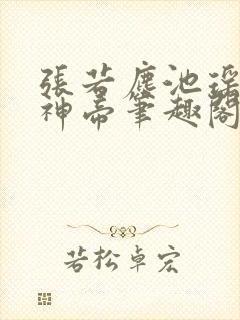 張若塵池瑤
神帝筆趣閣
若松卓宏